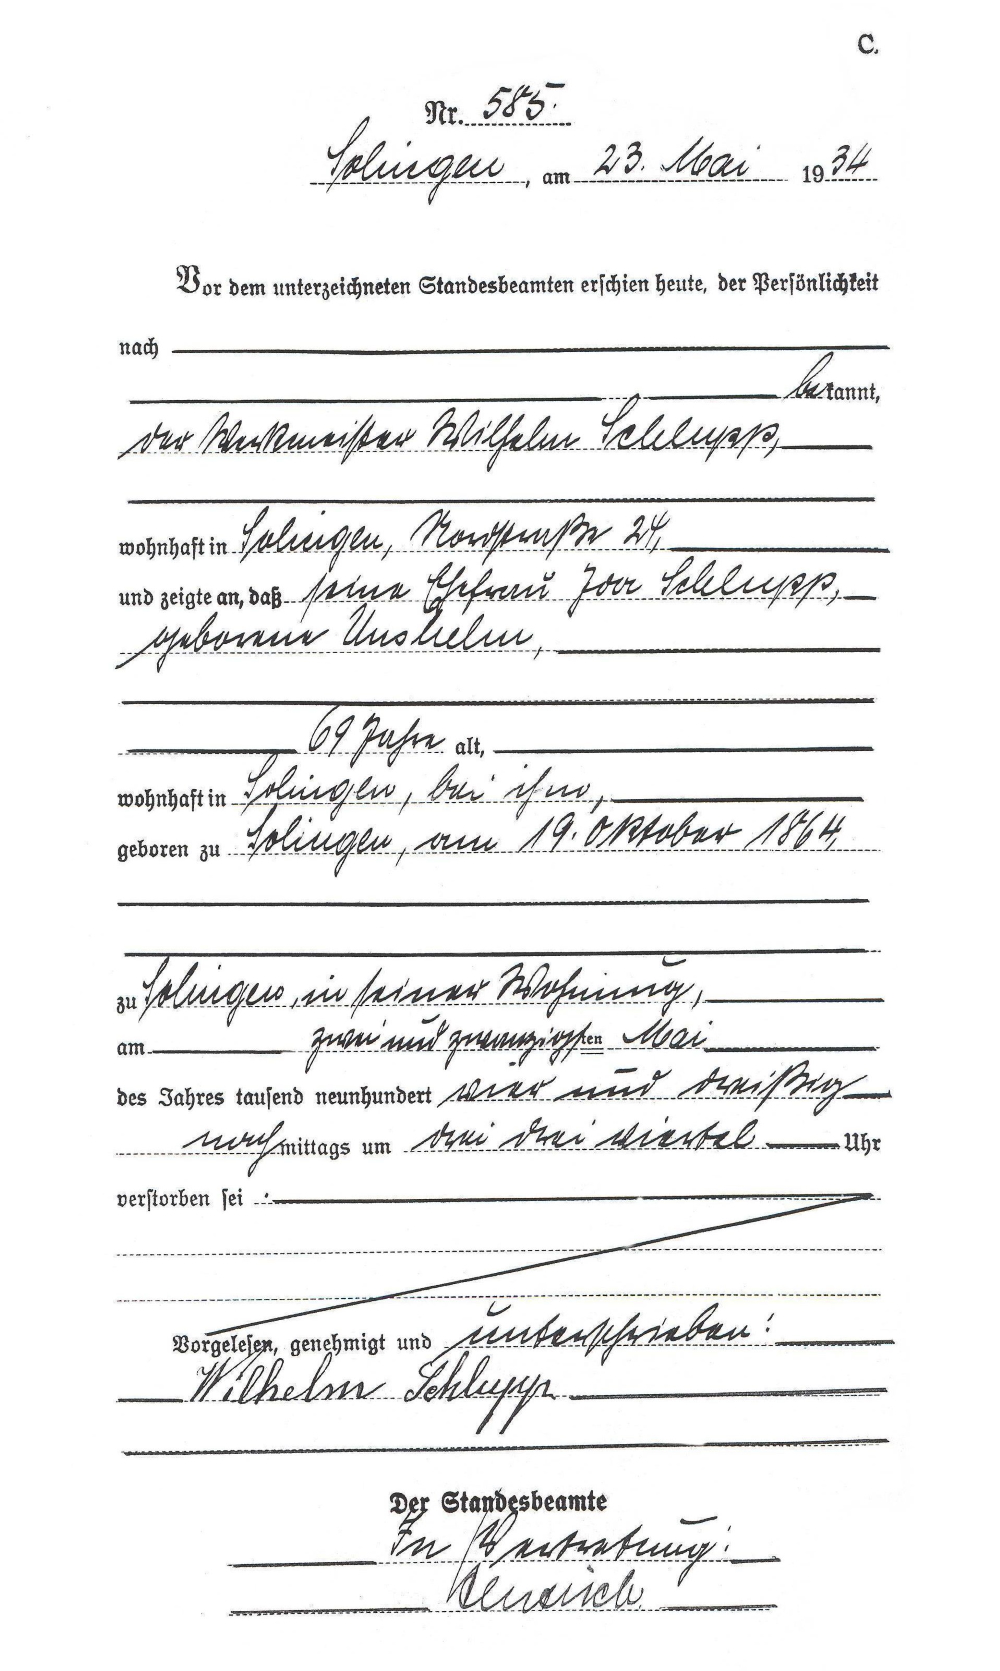 C.
Nr. 585.
Solingen, am 23. Mai 1934
Vor dem unterzeichneten Standesbeamten erschien heute, der Persönlichkeit
nach
bekannt,
der Werkmeister Wilhelm Schlupp,
wohnhaft in Solingen, Nordstraße 24,
und zeigte an, daß seine Ehefrau Ida Schlupp,
geborene Unshelm,
69 Jahre alt,
wohnhaft in Solingen, bei ihm,
geboren zu Solingen, am 19. Oktober 1864,
zu Solingen, in seiner Wohnung,
am zwei und zwanzigsten Mai
des Jahres tausend neunhundert vier und dreißig
nachmittags um drei drei viertel Uhr
verstorben sei.
Vorgelesen, genehmigt und unterschrieben:
Wilhelm Schlupp
Der Standesbeamte
In Vertretung: